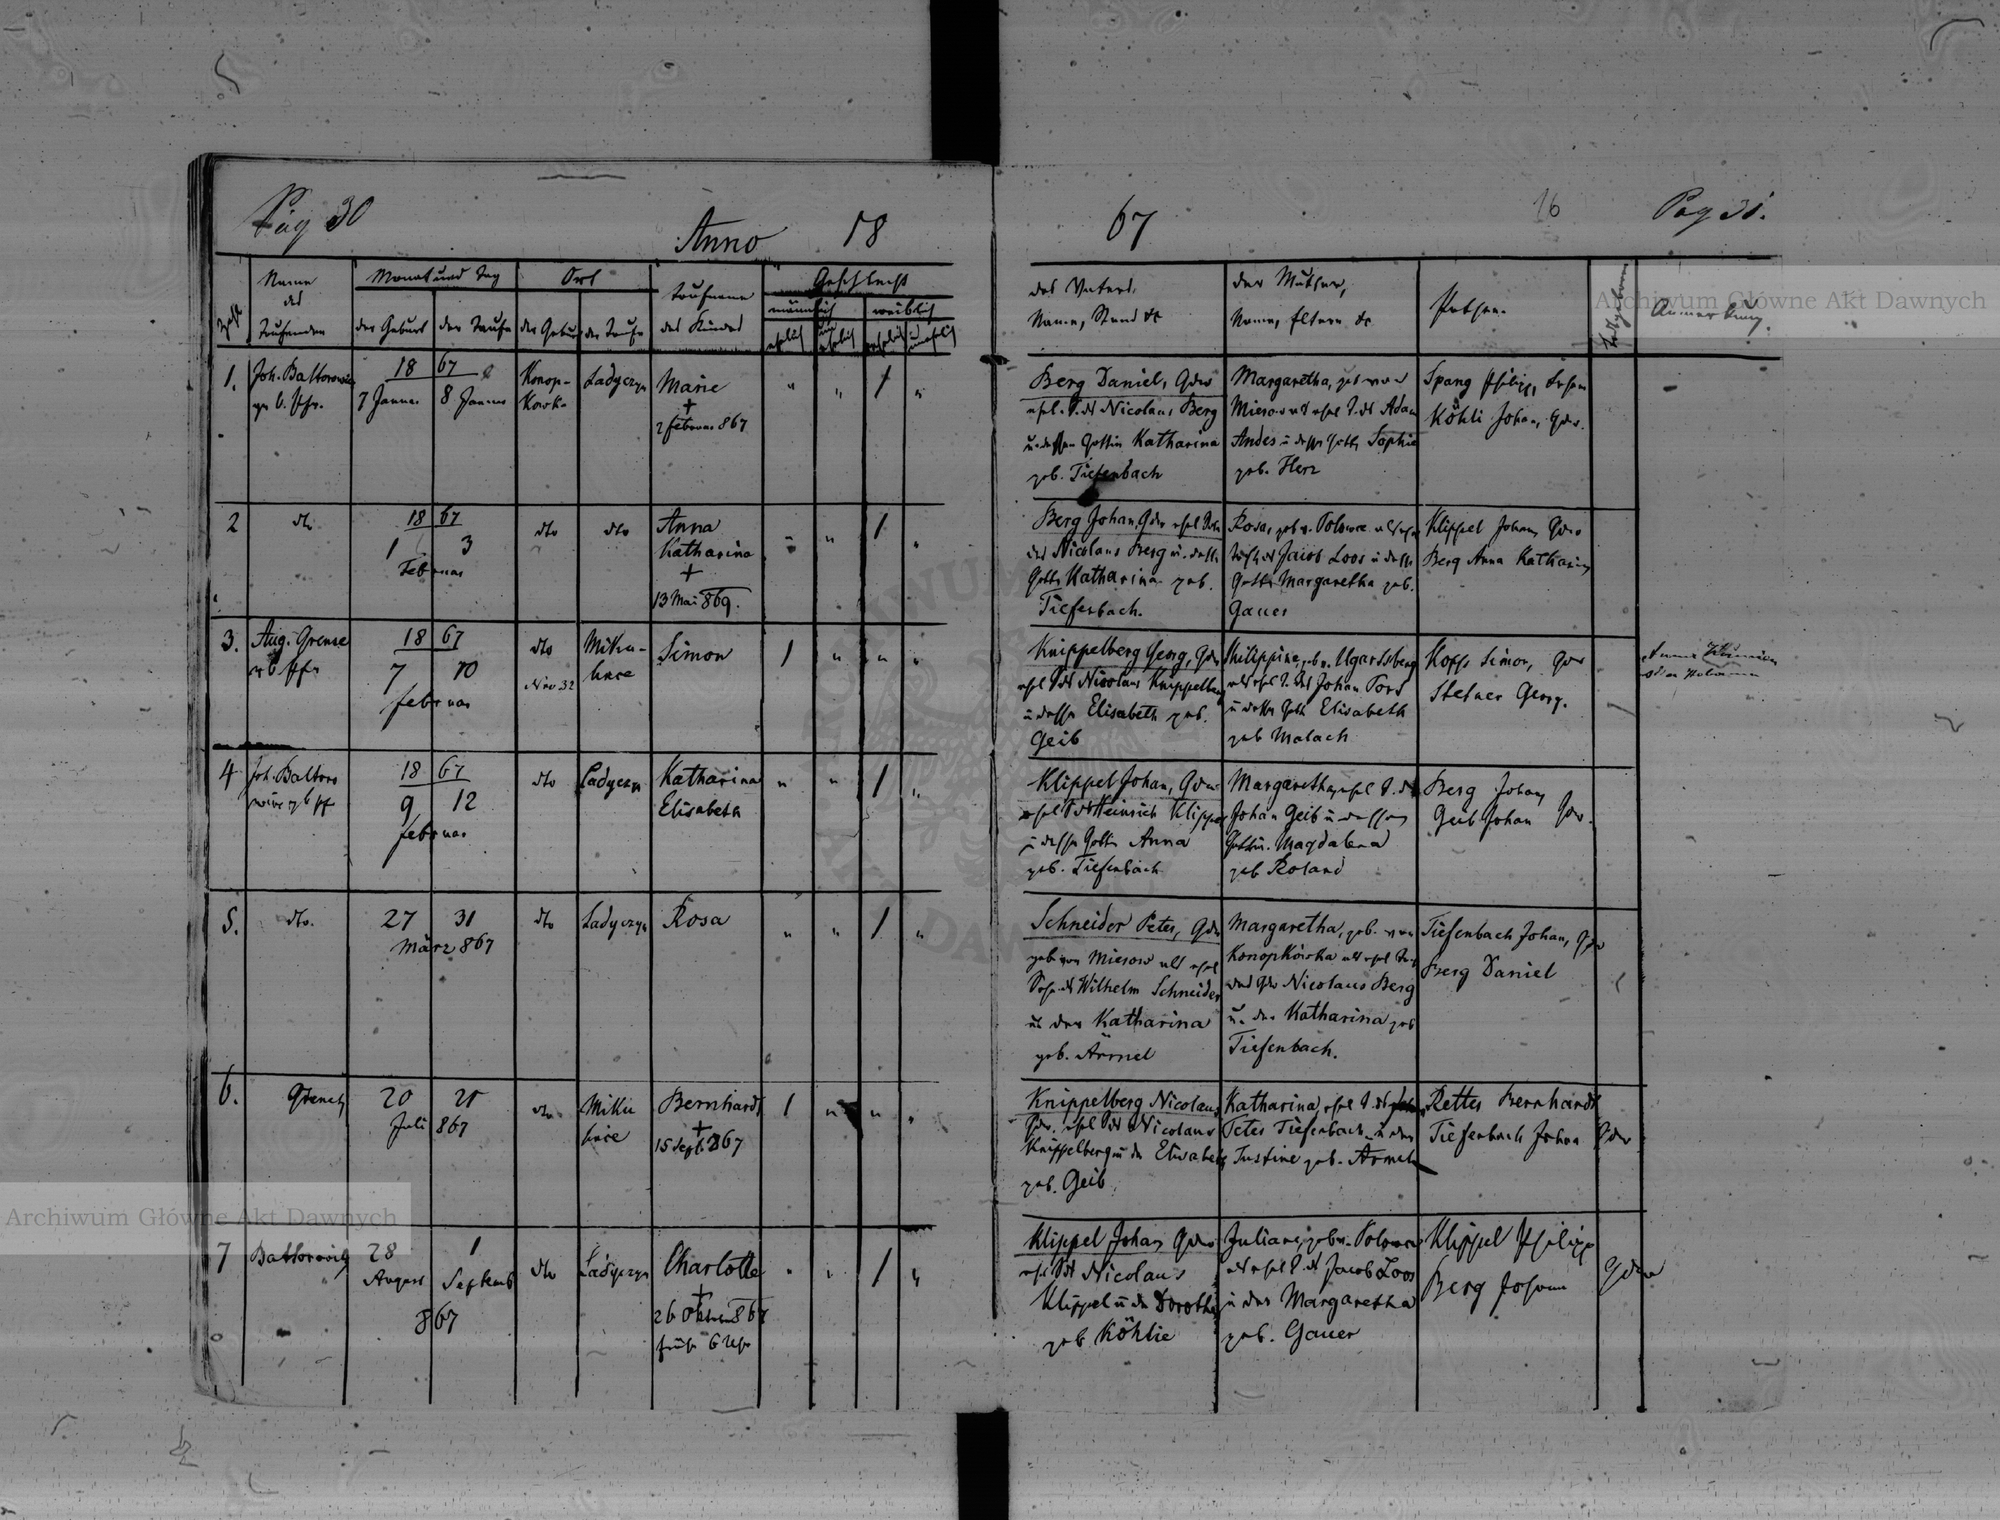 Pag 30
Anno 18
67
16
Pag 31.
Zahl
Name
des
Taufenden
Monat und Tag
der Geburt
der Taufe
Ort
der Geburt
der Taufe
Taufname
des Kindes
Geschlecht
männlich
weiblich
ehelich
unehelich
ehelich
unehelich
des Vaters,
Name, Stand etc
der Mutter,
Name, Eltern etc
Pathen
Anmerkung.
Archiwum Główne Akt Dawnych
1.
Joh. Baltorowicz
18 67
7 Januar
8 Januar
Konop-
kowka
Ladyczyn
Marie
+
2 Februar 867
" " 1 "
Berg Daniel, Gdw
ehel. S. des Nicolaus Berg
u dessen Gattin Katharina
geb. Tiefenbach
Margaretha, geb von
Mierow als ehel T. des Adam
Andes u dessen Gattin Sophie
geb. Herz
Spang Philipp,
Köhli Johan, Gdw.
2
dto
18 67
1 3
Februar
dto
dto
Anna
Katharina
+
13 Mai 869.
" " 1 "
Berg Johan, Gdw ehel Sohn
des Nicolaus Berg u. dessen
Gattin Katharina geb.
Tiefenbach.
Rosa, geb v. Polowce als ehel
Tocht des Jacob Loos u dessen
Gattin Margaretha geb.
Gauer
Klippel Johan, Gdw
Berg Anna Katharina
3.
Aug. Grense
18 67
7 10
Februar
dto
Nro 32
Miku-
lince
Simon
1 " " "
Knippelberg Georg, Gdw
ehel S des Nicolaus Knippelberg
u dessen Elisabeth geb.
Geib
Philippine, geb v. Ugartsberg
als ehel T. des Johan
u dessen Gattin Elisabeth
geb Malach
Kopf Simon, Gdw
Stefner Georg.
4
Joh. Baltoro
wicz
18 67
9 12
Februar
dto
Ladyczyn
Katharina
Elisabeth
" " 1 "
Klippel Johan, Gdw
ehel S des Heinrich Klippel
u dessen Gattin Anna
geb. Tiefenbach
Margaretha, ehel T. des
Johan Geib u dessen
Gattin Magdalena
geb Roland
Berg Johan,
Geib Johan Gdw.
5.
dto.
27 31
März 867
dto
Ladyczyn
Rosa
" " 1 "
Schneider Peter, Gdw
geb von Mierow als ehel
Sohn des Wilhelm Schneider
u der Katharina
geb. Armel
Margaretha, geb. von
Konopkówka als ehel Tocht
des Gdw Nicolaus Berg
u. der Katharina geb
Tiefenbach.
Tiefenbach Johan, Gdw
Berg Daniel
6.
20 21
Juli 867
dto
Miku
lince
Bernhardt
+
15 Sept 867
1 " " "
Knippelberg Nicolaus,
Gdw. ehel S des Nicolaus
Knippelberg u der Elisabeth
geb. Geib
Katharina, ehel T. des
Peter Tiefenbach u der
Justine geb. Armel
Rettes Bernhardt
Tiefenbach Johan Gdw
7
Baltorowicz
28 1
August Septemb
867
dto
Ladyczyn
Charlotte
+
26 Oktober 867
früh 6 Uhr
" " 1 "
Klippel Johan Gdw
ehel S des Nicolaus
Klippel u der Dorothea
geb Köhlie
Juliane, geb v. Polowce
als ehel T. des Jacob Loos
u der Margaretha
geb. Gauer
Klippel Philipp
Berg Johann Gdw
Archiwum Główne Akt Dawnych